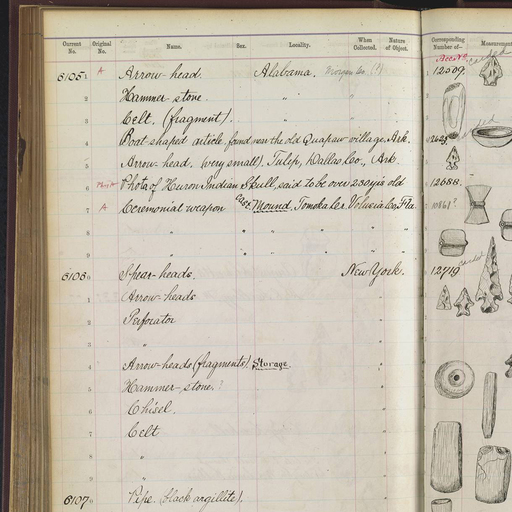 Current No. Original No. Name. Sex. Locality. When Collected. Nature of Object. Corresponding Number of— Measurement
Acc. No.
61051 A Arrow-head. Alabama. Morgan Co. (?) 12509.
2 Hammer-stone. "
3 Celt. (fragment). "
4 Boat shaped article, found near the old Quapaw village, Ark.
5 Arrow-head. (very small). Tulip, Dallas Co., Ark.
6 Photo of Huron Indian Skull, said to be over 230 yrs old 12688.
7 A Ceremonial weapon Mound, Tomoka Cr. Volusia Co. Fla. 10861?
8 " " " "
9 " " " "
61060 Spear-heads. New York. 12719
1 Arrow-heads "
2 Perforator "
3 " "
4 Arrow-heads (fragments). Storage. "
5 Hammer-stone.? "
6 Chisel. "
7 Celt "
8 " "
9 " "
61070 Pipe. (black argillite). "